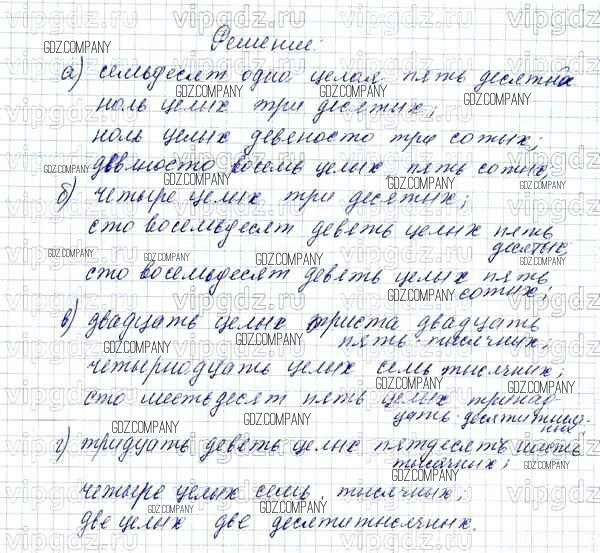 Решение:
а) семьдесят одна целая пять десятых
ноль целых три десятых;
ноль целых девяносто три сотых;
девяносто восемь целых, пять сотых;
б) четыре целых три десятых;
сто восемьдесят девять целых пять
десятых
сто восемьдесят девять целых пять
сотых;
в) двадцать целых триста двадцать
пять тысячных;
четырнадцать целых семь тысячных;
сто шестьдесят пять целых тринад
цать десятитысяч-
ных;
г) тридцать девять целых пятдесять шесть
тысячных;
четыре целых семь тысячных;
две целых две десятитысячных.